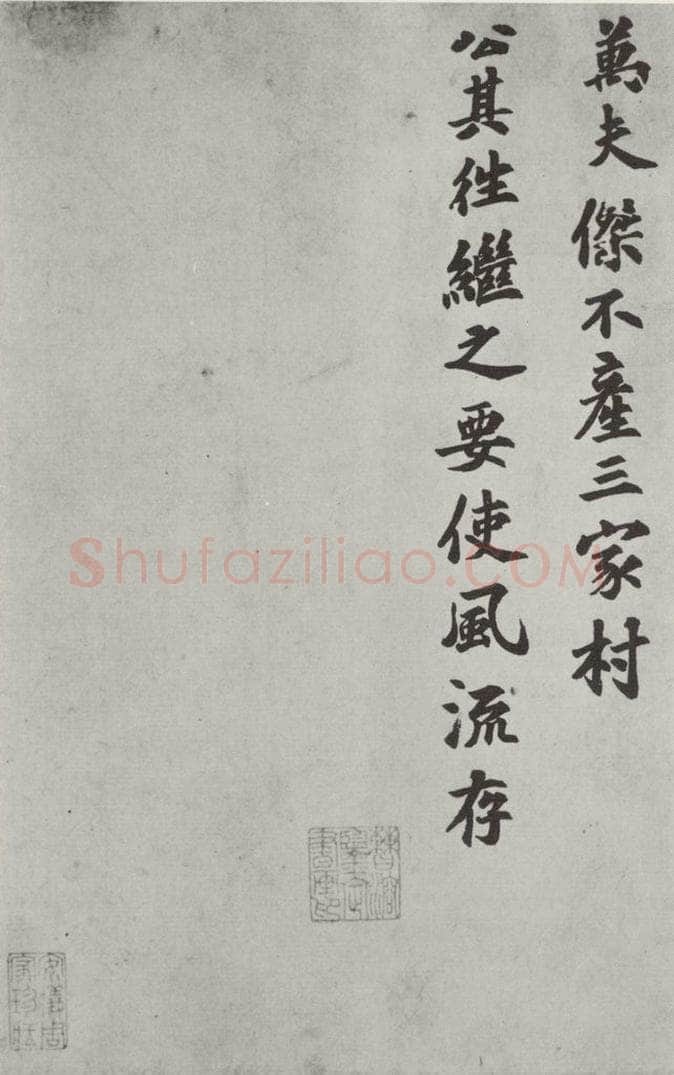 萬夫傑不產三家村
公其往繼之要使風流存
Shufaziliao.COM